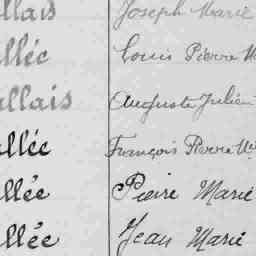 allais Joseph Marie
allée Louis Pierre M
allais Auguste Julien
allée François Pierre M
allée Pierre Marie
allée Jean Marie